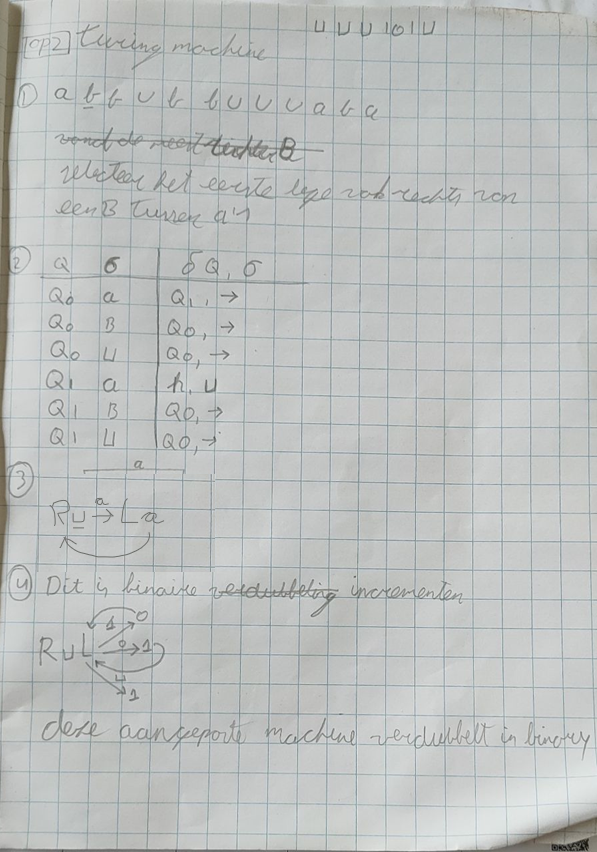 ⊔ ⊔ ⊔ 101 ⊔
[OP2] turing machine
① a b b ∪ b b ∪ ∪ ∪ a b a
selecteer het eerste lege vak rechts van
een B tussen a's
② Q σ δQ, σ
Q0 a Q1, →
Q0 B Q0, →
Q0 ⊔ Q0, →
Q1 a h, ⊔
Q1 B Q0, →
Q1 ⊔ Q0, →
a
③
R⊔ a→ L a
④ Dit is binaire verdubbeling incrementen
1 0
R ∪ L 0→1
⊔ 1
deze aangepaste machine verdubbelt in binary